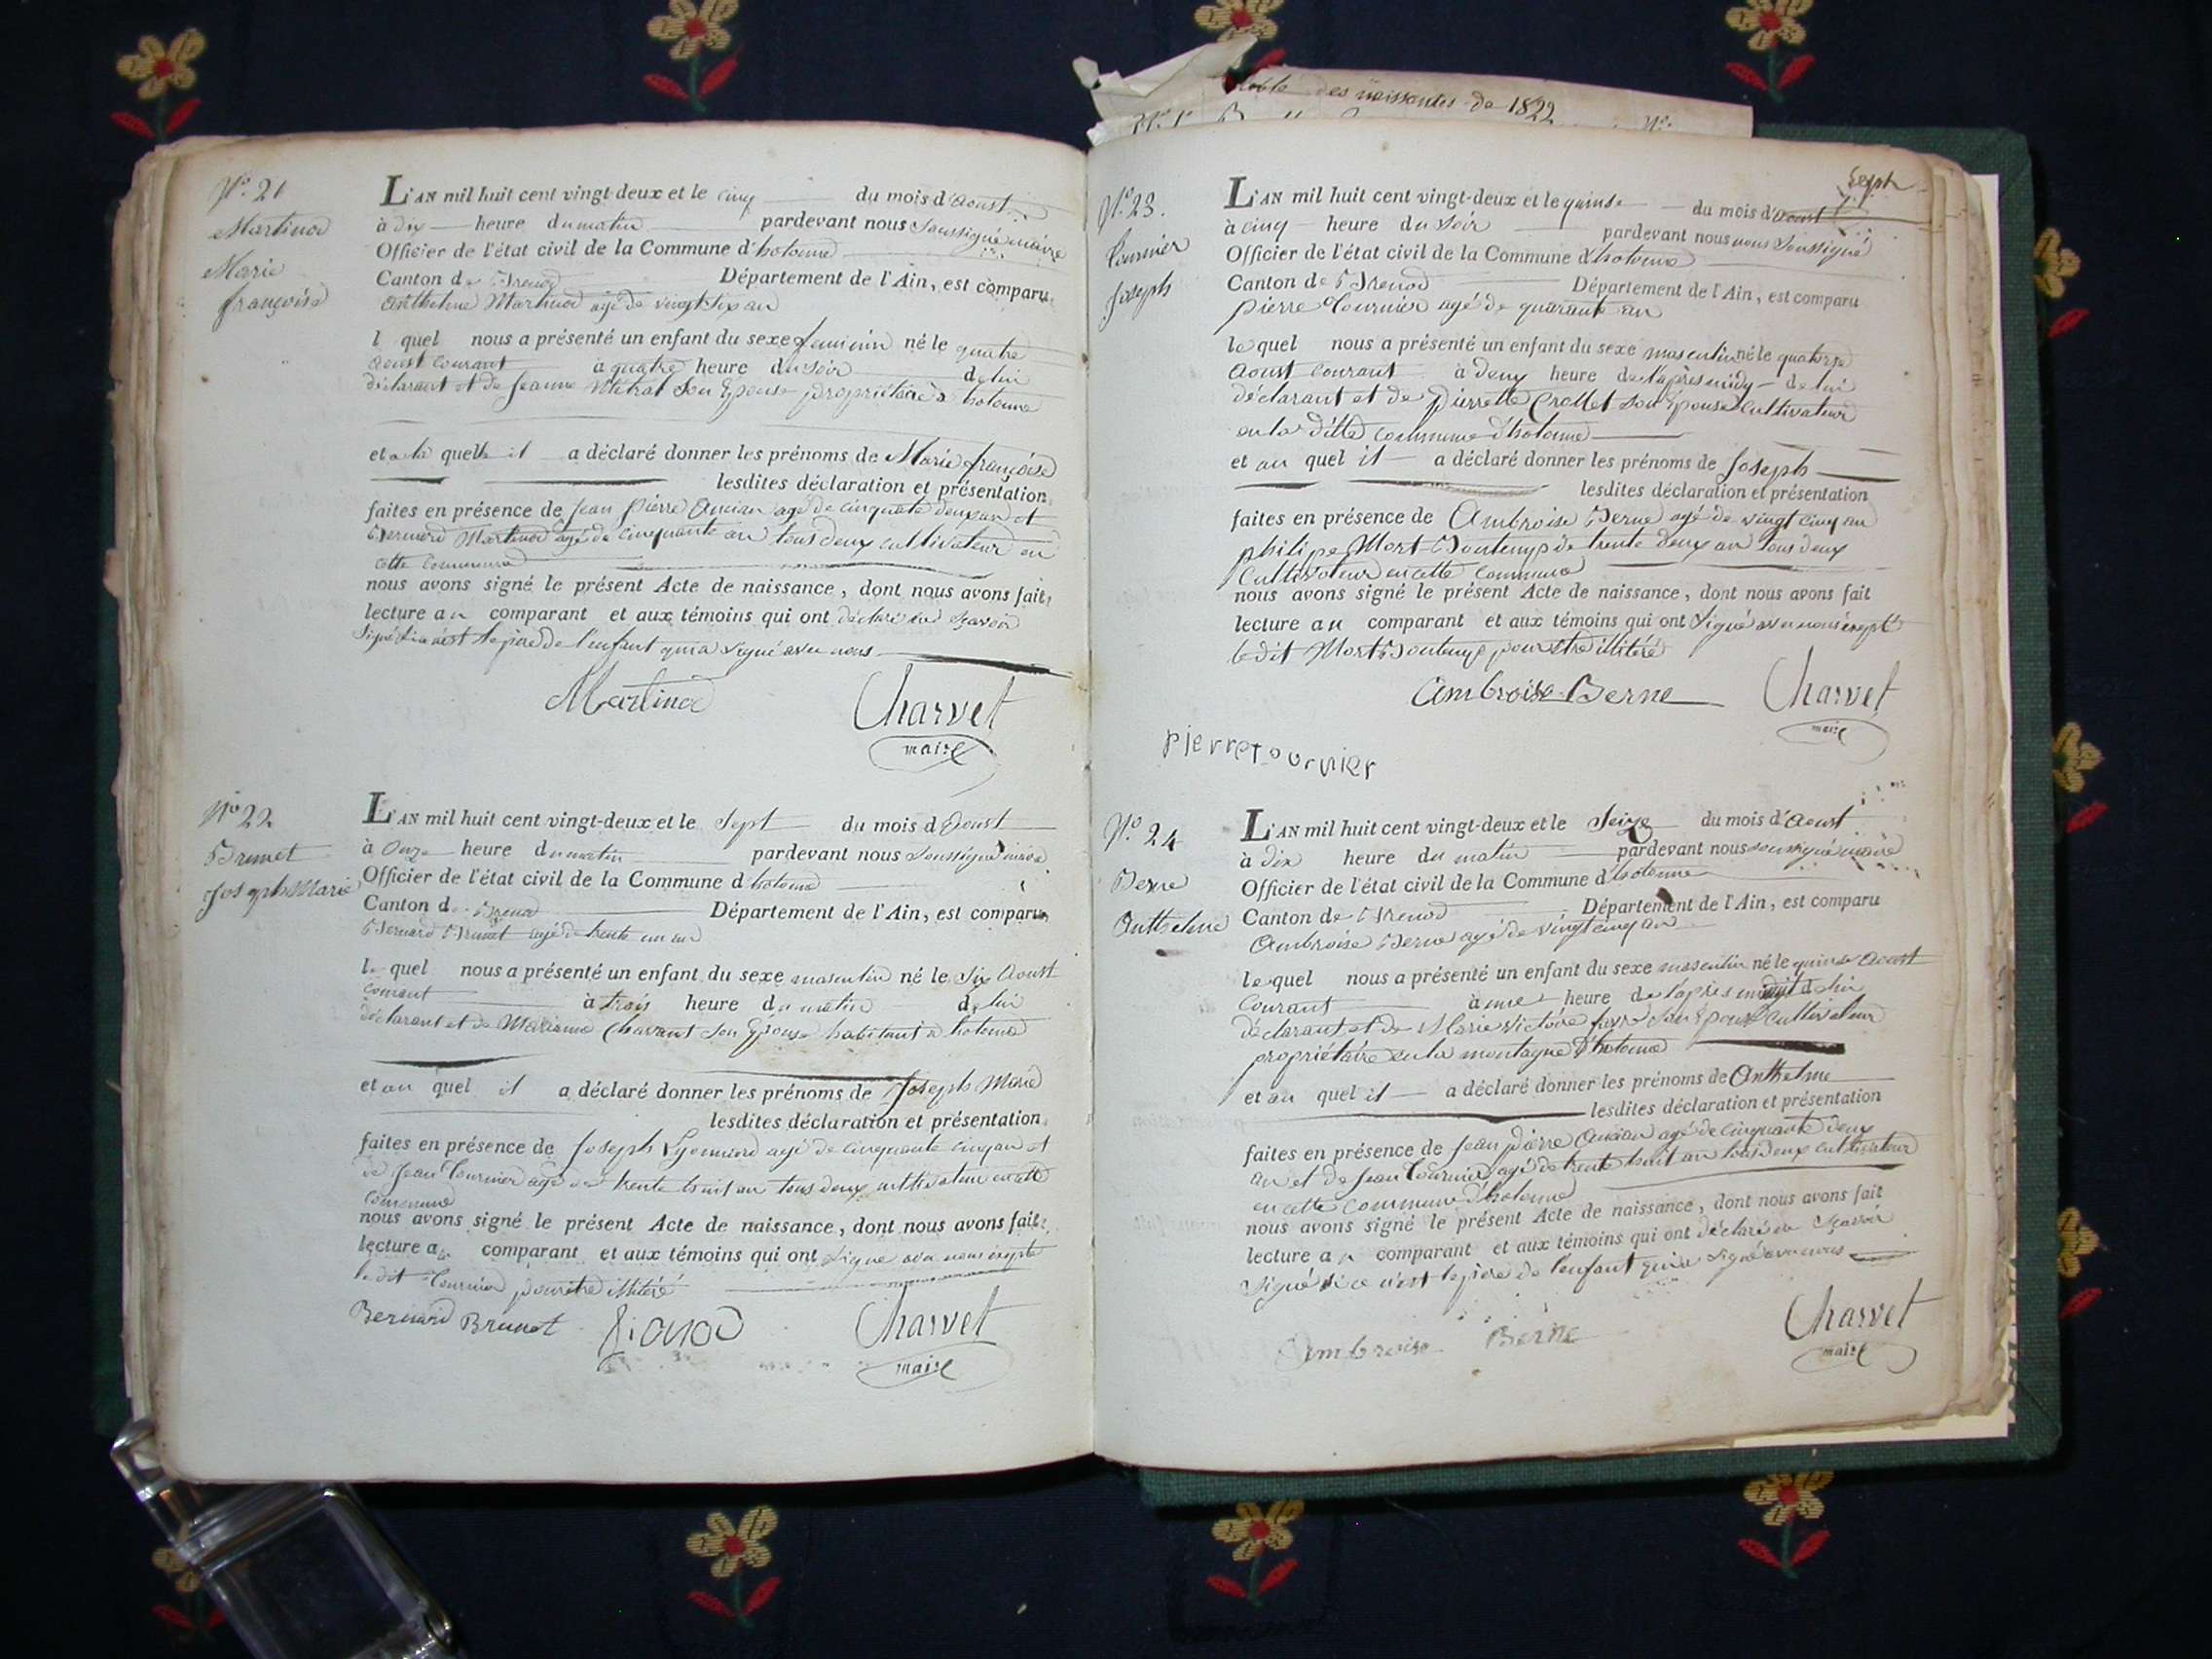 table des naissantes de 1822
N.° 21
Martinod
Marie
françoise
L'AN mil huit cent vingt-deux et le cinq du mois d'Aoust
à dix heure du matin pardevant nous Soussigné maire
Officier de l'état civil de la Commune d'hotonne
Canton de Brenod Département de l'Ain, est comparu
anthelme Martinod agé de vingt six an
l quel nous a présenté un enfant du sexe feminin né le quatre
aoust courant à quatre heure du soir de lui
déclarant et de Jeanne son Epouse propriétaire à hotonne
et a la quelle il a déclaré donner les prénoms de Marie françoise
lesdites déclaration et présentation
faites en présence de Jean pierre Ancian agé de cinquante deux an et
Bernard Martinod agé de cinquante an tous deux cultivateur en
cette commune
nous avons signé le présent Acte de naissance, dont nous avons fait
lecture au comparant et aux témoins qui ont déclaré ne sçavoir
signé si ce n'est le père de l'enfant qui a signé avec nous
Martinod Charvet
maire
N° 22
Brunet
Joseph Marie
L'AN mil huit cent vingt-deux et le Sept du mois d Aoust
à Onze heure du matin pardevant nous soussigné maire
Officier de l'état civil de la Commune d hotonne
Canton d Brenod Département de l'Ain, est comparu
Bernard Brunet agé de trente un an
le quel nous a présenté un enfant du sexe masculin né le six Aoust
courant à trois heure du matin de lui
déclarant et de Marianne Chavant son Epouse habitant à hotonne
et au quel il a déclaré donner les prénoms de Joseph Marie
lesdites déclaration et présentation
faites en présence de Joseph Lyonnard agé de cinquante cinq an et
de Jean Tournier agé de trente huit an tous deux cultivateur en cette
commune
nous avons signé le présent Acte de naissance, dont nous avons fait
lecture au comparant et aux témoins qui ont signé avec nous excepté
le dit Tournier pour être illitéré
Bernard Brunet Charvet
maire
N.° 23.
Tournier
Joseph
Seph
L'AN mil huit cent vingt-deux et le quinse du mois d'aoust
à cinq heure du soir pardevant nous nous Soussigné
Officier de l'état civil de la Commune d'hotonne
Canton de Brenod Département de l'Ain, est comparu
pierre Tournier agé de quarante an
le quel nous a présenté un enfant du sexe masculin né le quatorse
Aoust courant à deux heure de l'après midy de lui
déclarant et de pierrette Crollet son Epouse cultivateur
en la ditte commune d'hotonne
et au quel il a déclaré donner les prénoms de Joseph
lesdites déclaration et présentation
faites en présence de Ambroise Berne agé de vingt cinq an
philipe Mort-Bontemps de trente deux an tous deux
Cultivateur en cette commune
nous avons signé le présent Acte de naissance, dont nous avons fait
lecture au comparant et aux témoins qui ont signé avec nous éxepté
le dit Mort Bontemps pour être illitéré
Ambroise Berne Charvet
maire
pierre tournier
N.° 24
Berne
Anthelme
L'AN mil huit cent vingt-deux et le Seize du mois d'Aoust
à dix heure du matin pardevant nous soussigné maire
Officier de l'état civil de la Commune d'hotonne
Canton de Brenod Département de l'Ain, est comparu
Ambroise Berne agé de vingt cinq an
le quel nous a présenté un enfant du sexe masculin né le quinse Aoust
courant à une heure de l'après midy de lui
déclarant et de Marie Victoire favre son Epouse cultivateur
propriétaire en la montagne d'hotonne
et au quel il a déclaré donner les prénoms de Anthelme
lesdites déclaration et présentation
faites en présence de Jean pierre Ancian agé de cinquante deux
an et de Jean Tournier agé de trente huit an tous deux cultivateur
en cette commune d'hotonne
nous avons signé le présent Acte de naissance, dont nous avons fait
lecture au comparant et aux témoins qui ont déclaré ne sçavoir
signé si ce n'est le père de l'enfant qui a signé avec nous
Ambroise Berne Charvet
maire